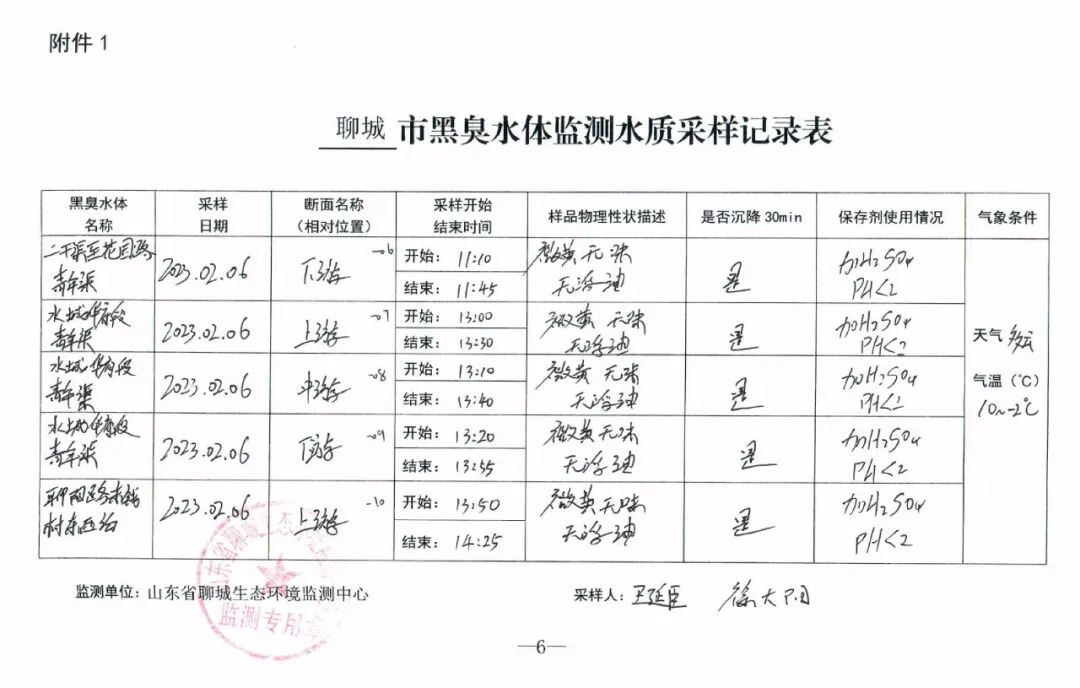 附件 1
聊城 市黑臭水体监测水质采样记录表
黑臭水体名称 采样日期 断面名称（相对位置） 采样开始结束时间 样品物理性状描述 是否沉降 30min 保存剂使用情况 气象条件
二干渠至花园路青年渠 2023.02.06 下游 -06 开始： 11:10 微黄 无味 是 加H2SO4
结束： 11:45 无浮油 PH<2
水城华府段青年渠 2023.02.06 上游 -07 开始： 13:00 微黄 无味 是 加H2SO4
结束： 13:30 无浮油 PH<2
天气 多云
水城华府段青年渠 2023.02.06 中游 -08 开始： 13:10 微黄 无味 是 加H2SO4
结束： 13:40 无浮油 PH<2
气温（℃）
10~-2℃
水城华府段青年渠 2023.02.06 下游 -09 开始： 13:20 微黄 无味 是 加H2SO4
结束： 13:55 无浮油 PH<2
村东西沟 2023.02.06 上游 -10 开始： 13:50 微黄 无味 是 加H2SO4
结束： 14:25 无浮油 PH<2
监测单位：山东省聊城生态环境监测中心 采样人： 王延臣 徐大阳
监测专用章
—6—